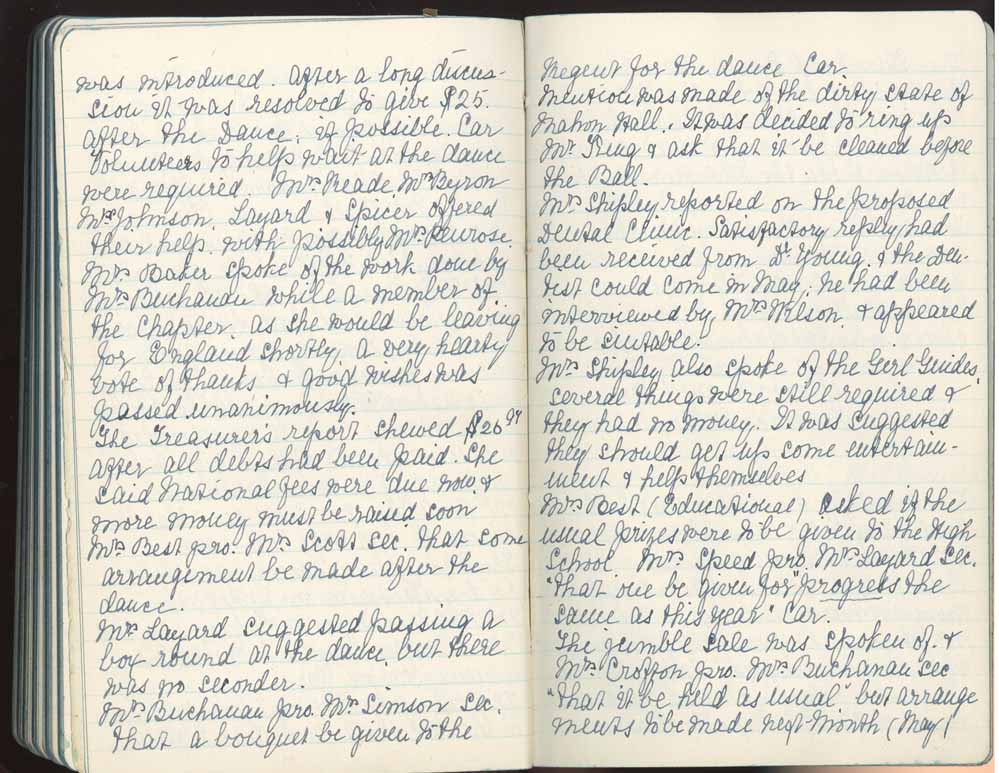 was introduced. After a long discus-
sion it was resolved to give $25.
after the Dance, if possible. Car
Volunteers to help wait at the dance
were required. Mrs Reade Mrs Byron
Mrs Johnson, Layard & Spicer offered
their help, with possibly Mrs Penrose.
Mrs Baker spoke of the work done by
Mrs Buchanan while a member of
the Chapter, as she would be leaving
for England shortly, a very hearty
vote of thanks & good wishes was
passed unanimously.
The Treasurer's report shewed $26
after all debts had been paid. She
said National fees were due now, &
more money must be raised soon
Mrs Best pro. Mrs Scott sec. that some
arrangement be made after the
dance.
Mrs Layard suggested passing a
box round at the dance, but there
was no seconder.
Mrs Buchanan pro. Mrs Simson sec.
that a bouquet be given to the
Regent for the dance Car.
Mention was made of the dirty state of
Mahon Hall. It was decided to ring up
Mr King & ask that it be cleaned before
the Ball.
Mrs Shipley reported on the proposed
Dental Clinic. Satisfactory reply had
been received from Dr Young, & the Den-
tist could come in May, he had been
interviewed by Mrs Wilson & appeared
to be suitable.
Mrs Shipley also spoke of the Girl Guides,
several things were still required &
they had no money. It was suggested
they should get up some entertain-
ment & help themselves
Mrs Best (Educational) asked if the
usual prizes were to be given to the High
School Mrs Speed pro. Mrs Layard sec.
"that one be given for" progress the
same as this year" Car.
The jumble sale was spoken of. &
Mrs Crofton pro. Mrs Buchanan sec
"that it be held as usual" but arrange
ments to be made next month (May)